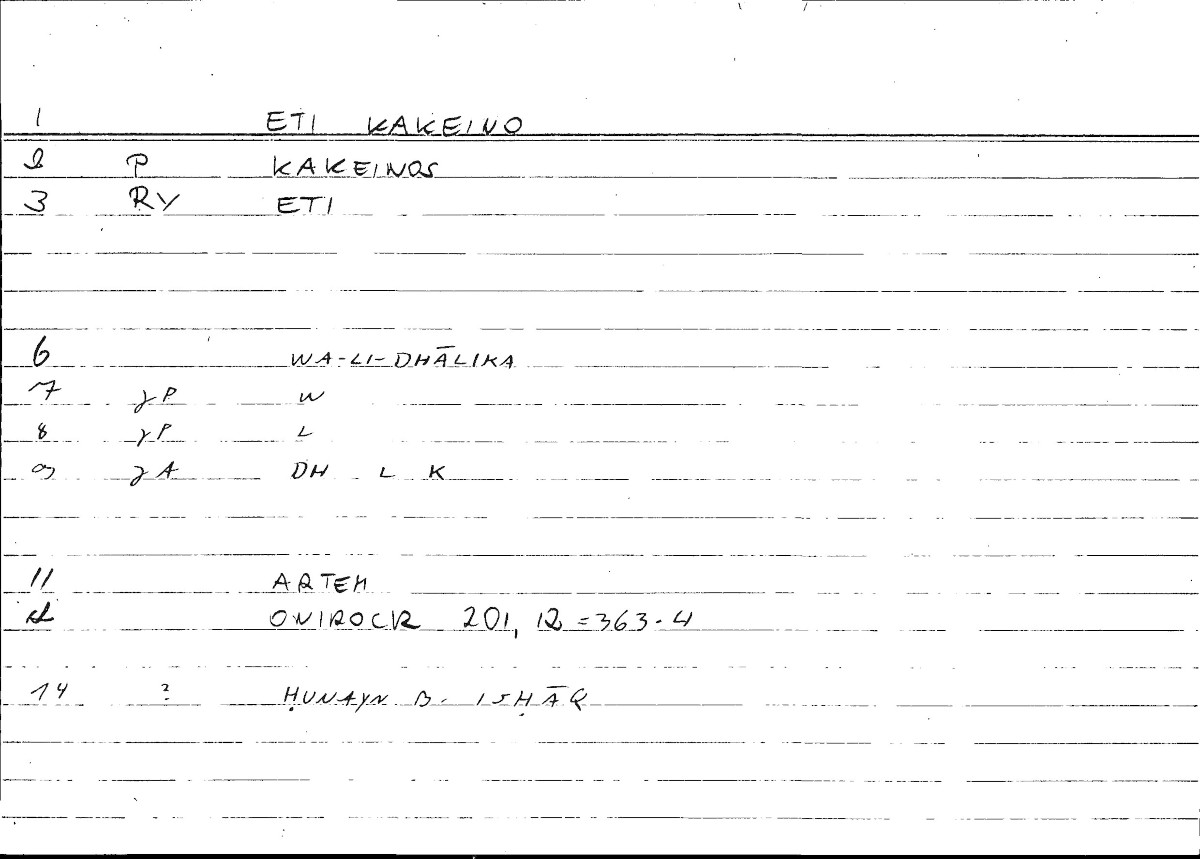 1 ETI KAKEINO
2 P KAKEINOS
3 RV ETI
6 WA-LI-DHĀLIKA
7 γP W
8 γP L
9 γA DH L K
11 ARTEM
ONIROCR 201, 12 = 363.4
14 ? ḤUNAYN B. ISḤĀQ